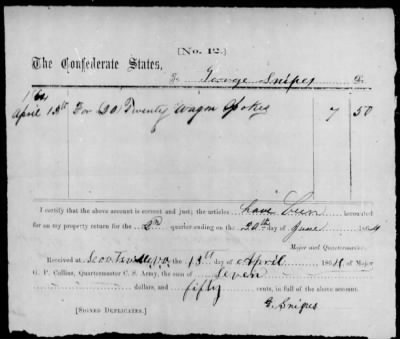 [No. 12.]
The Confederate States,
To George Snipes Dr.
1864
April 13th For (20) Twenty Wagon Spokes 7 50
I certify that the above account is correct and just; the articles have been accounted
for on my property return for the 2nd quarter ending on the 30th day of June 1864
Major and Quartermaster.
Received at the 13th day of April 1864, of Major
G. P. Collins, Quartermaster C. S. Army, the sum of Seven
dollars, and fifty cents, in full of the above account.
G. Snipes
[SIGNED DUPLICATES.]